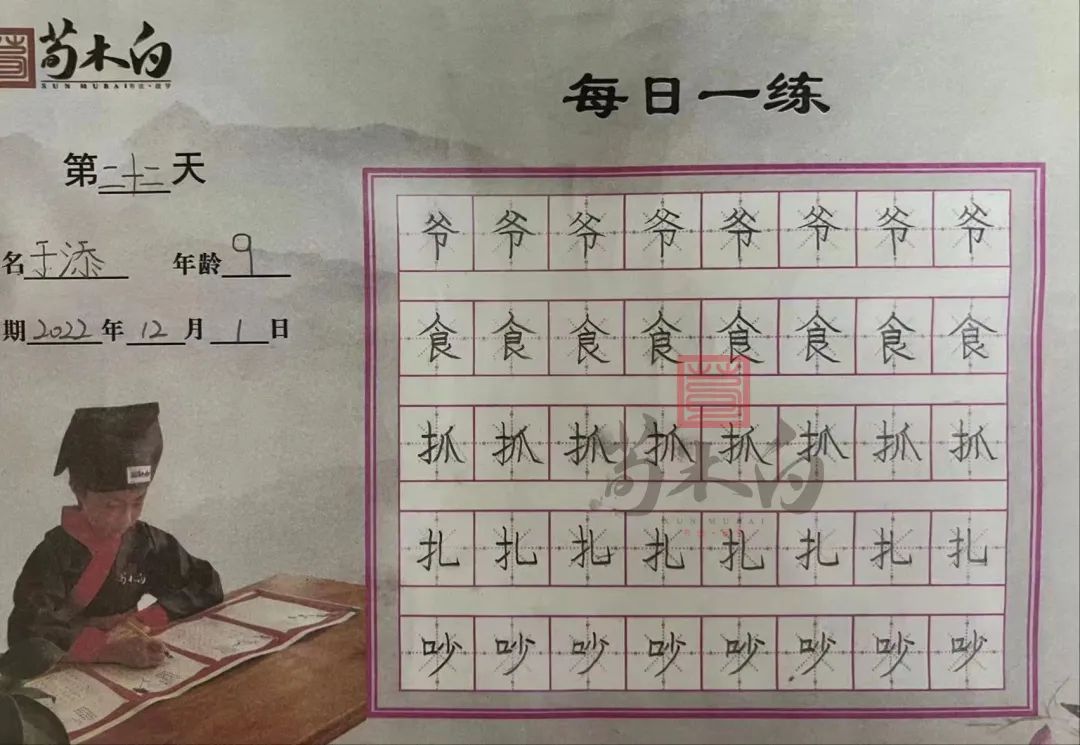 荀木白
XUN MUBAI
每日一练
第二十二天
名于添 年龄9
期2022年12月1日
爷爷爷爷爷爷爷爷
食食食食食食食食
抓抓抓抓抓抓抓抓
扎扎扎扎扎扎扎扎
吵吵吵吵吵吵吵吵
荀木白
XUN MUBAI